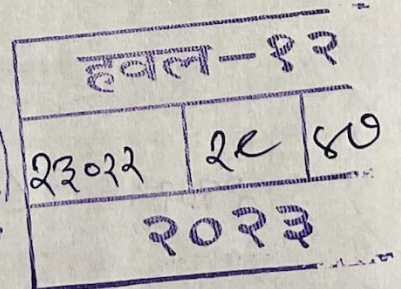 हवल-१२
२३०२२ २९ ४७
२०२३